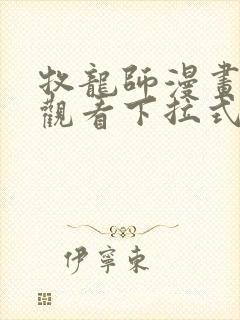 牧龍師漫畫
觀看下拉式
伊寧東